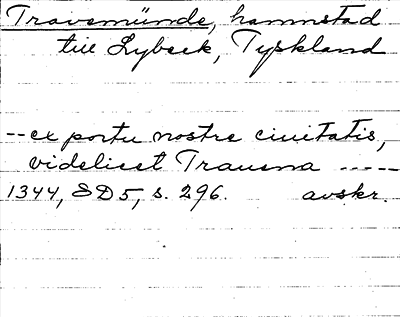 Travemünde, hamnstad
till Lybeck, Tyskland
--ex portu nostre ciuitatis,
videlicet Trauena -----
1344, SD5, s. 296. avskr.